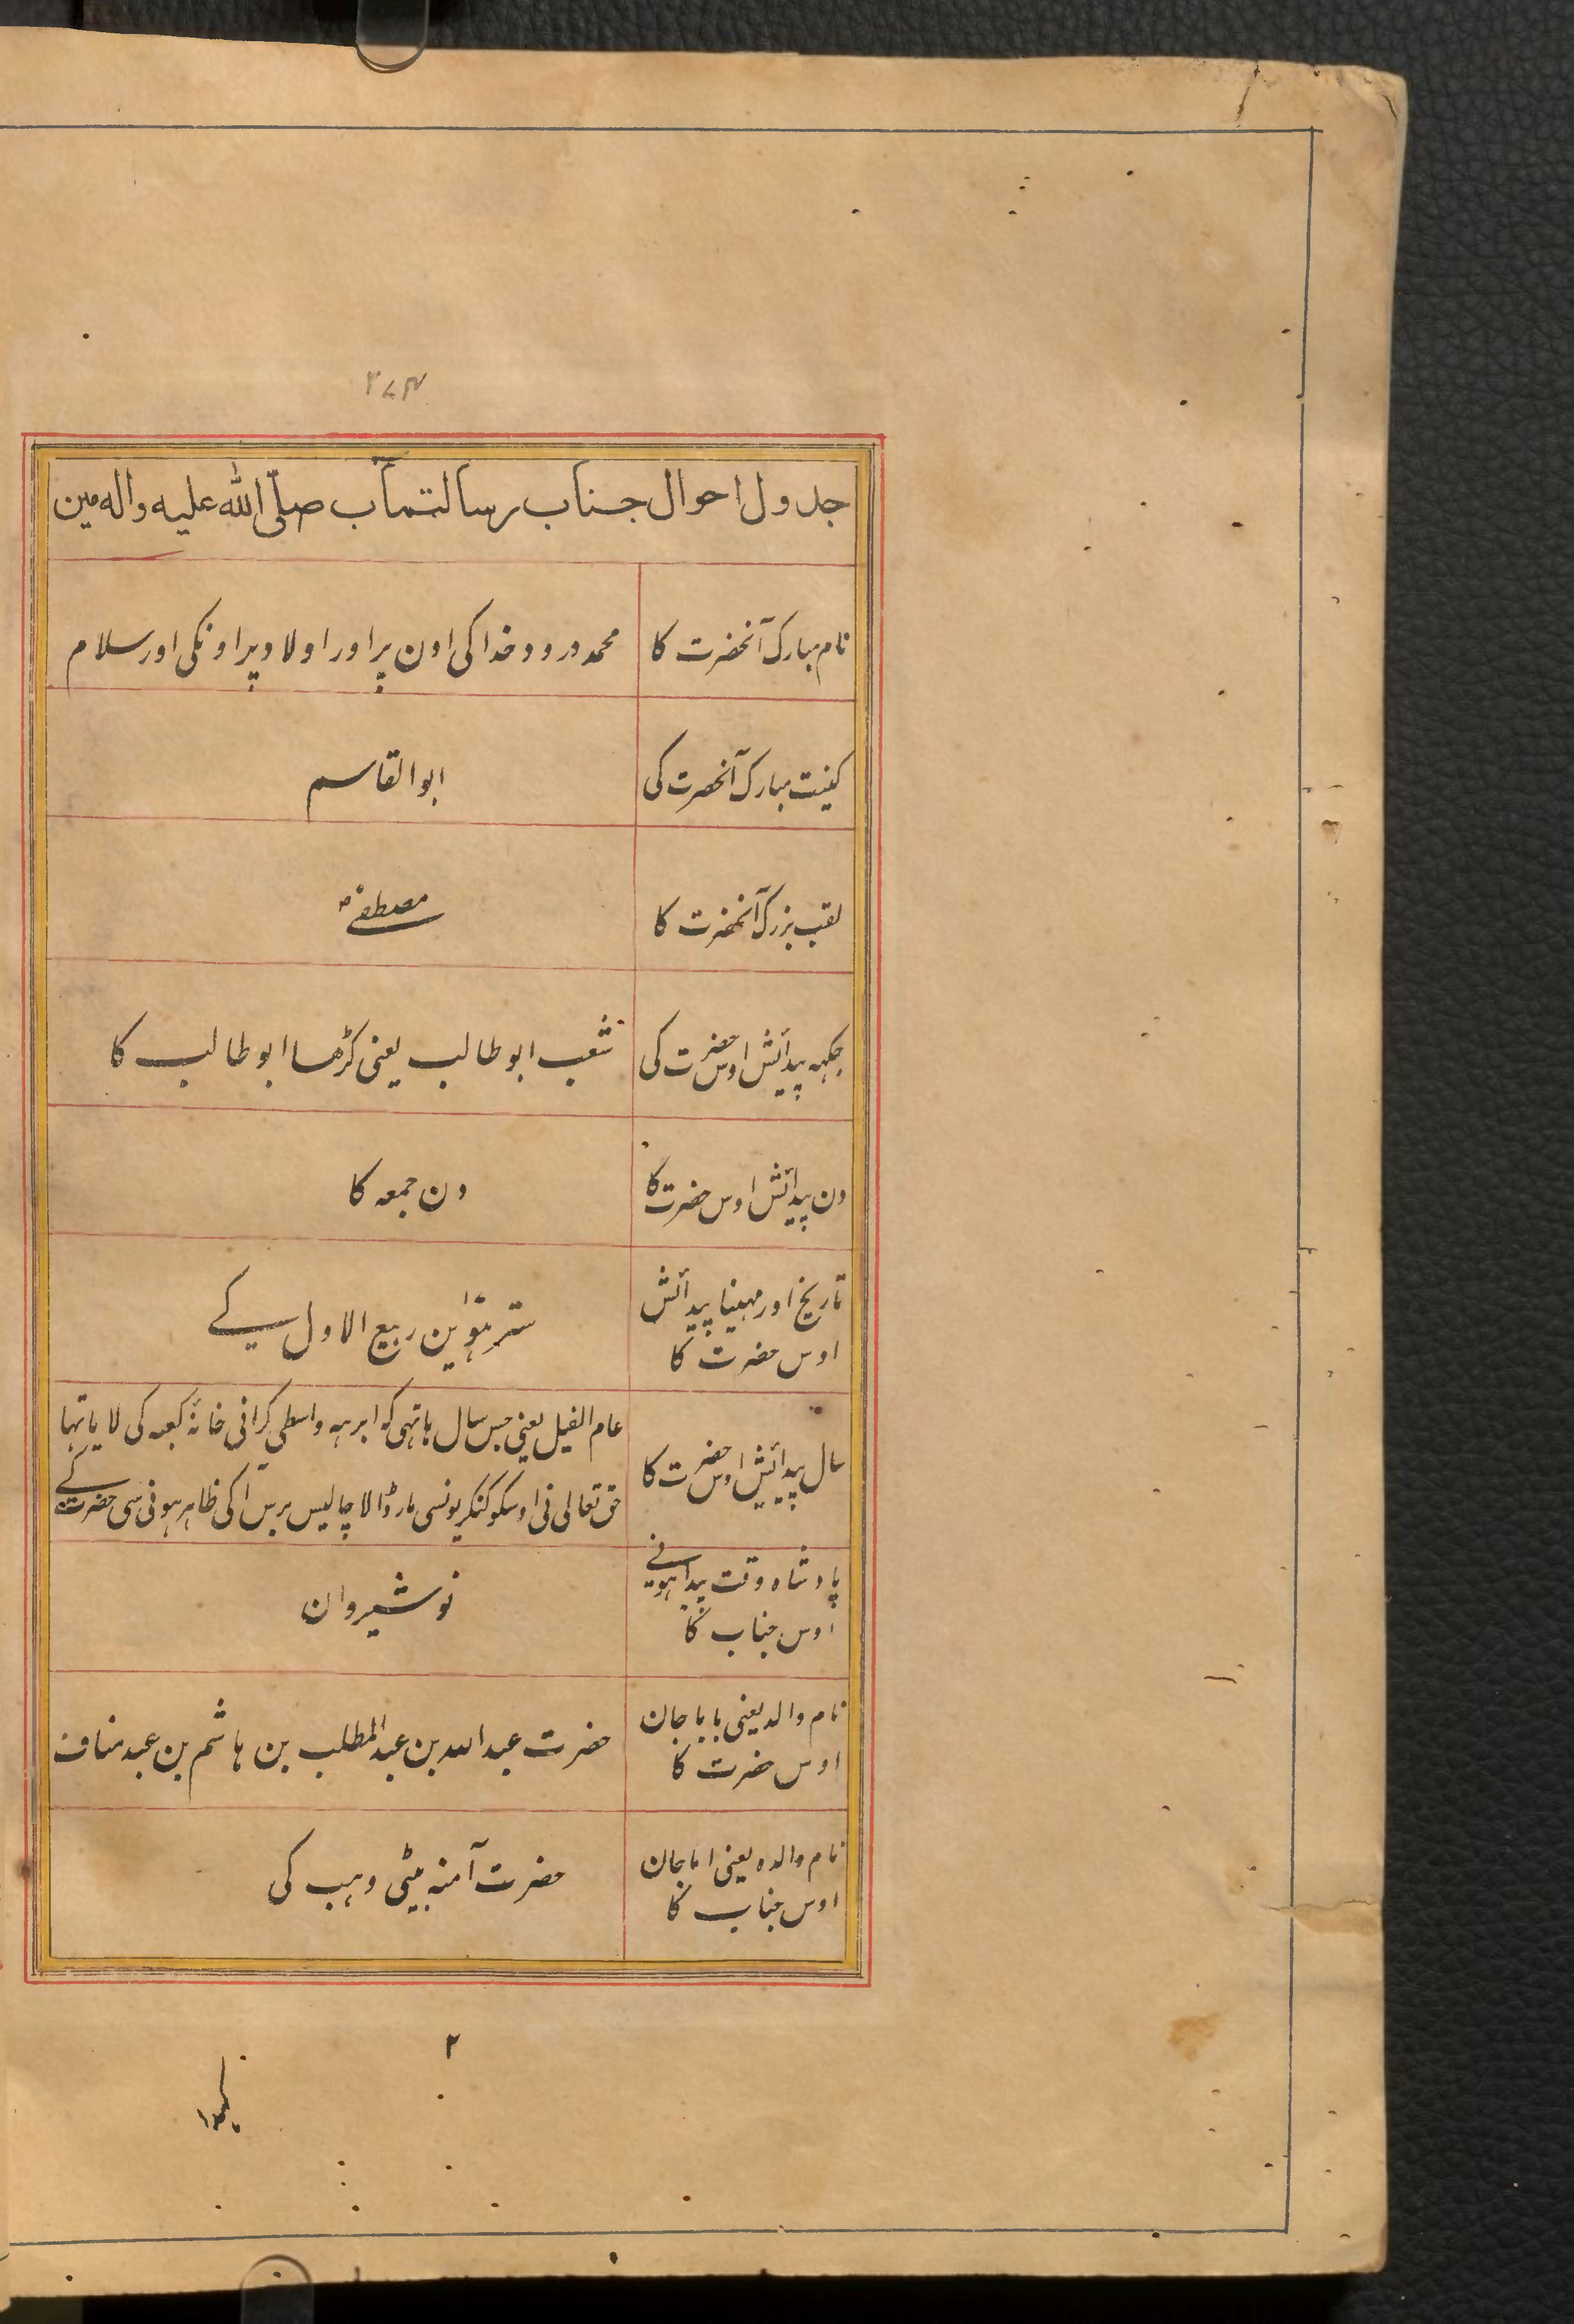 ۲۷۴
جدول احوال جناب رسالتمآب صلّی اللّه علیه واله مین
نام مبارک آنحضرت کا
محمد درود خدا کی اون پر اور اولاد پر اونکی اور سلام
کنیت مبارک آنحضرت کی
ابوالقاسم
لقب بزرک آنحضرت کا
مصطفےٰ
جکہہ پیدائش اوس حضرت کی
شعب ابوطالب یعنی کڑھا ابوطالب کا
دن پیدائش اوس حضرت کا
دن جمعہ کا
تاریخ اور مہینا پیدائش
اوس حضرت کا
سترہوین ربیع الاول کے
سال پیدائش اوس حضرت کا
عام الفیل یعنی جس سال ہاتہی کہ ابرہہ واسطی کرانی خانۂ کعبہ کی لایا تہا
حق تعالی نی اوسکو کنکریونسی مار ڈالا چالیس برس آکی ظاہر ہونی سی حضرت کے
پادشاہ وقت پیدا ہونے
اوس جناب کا
نوشیروان
نام والد یعنی بابا جان
اوس حضرت کا
حضرت عبد اللہ بن عبدالمطلب بن ہاشم بن عبد مناف
نام والدہ یعنی اما جان
اوس جناب کا
حضرت آمنہ بیٹی وہب کی
۲